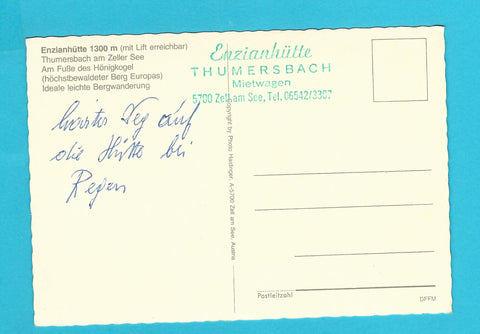 Enzianhütte 1300 m (mit Lift erreichbar)
Thumersbach am Zeller See
Am Fuße des Hönigkogel
(höchstbewaldeter Berg Europas)
Ideale leichte Bergwanderung
Enzianhütte
THUMERSBACH
Mietwagen
5700 Zell am See, Tel. 06542/3367
Weg auf
die Hütte bei
Regen
Copyright by Photo Haidinger, A-5700 Zell am See, Austria
Postleitzahl
DFFM